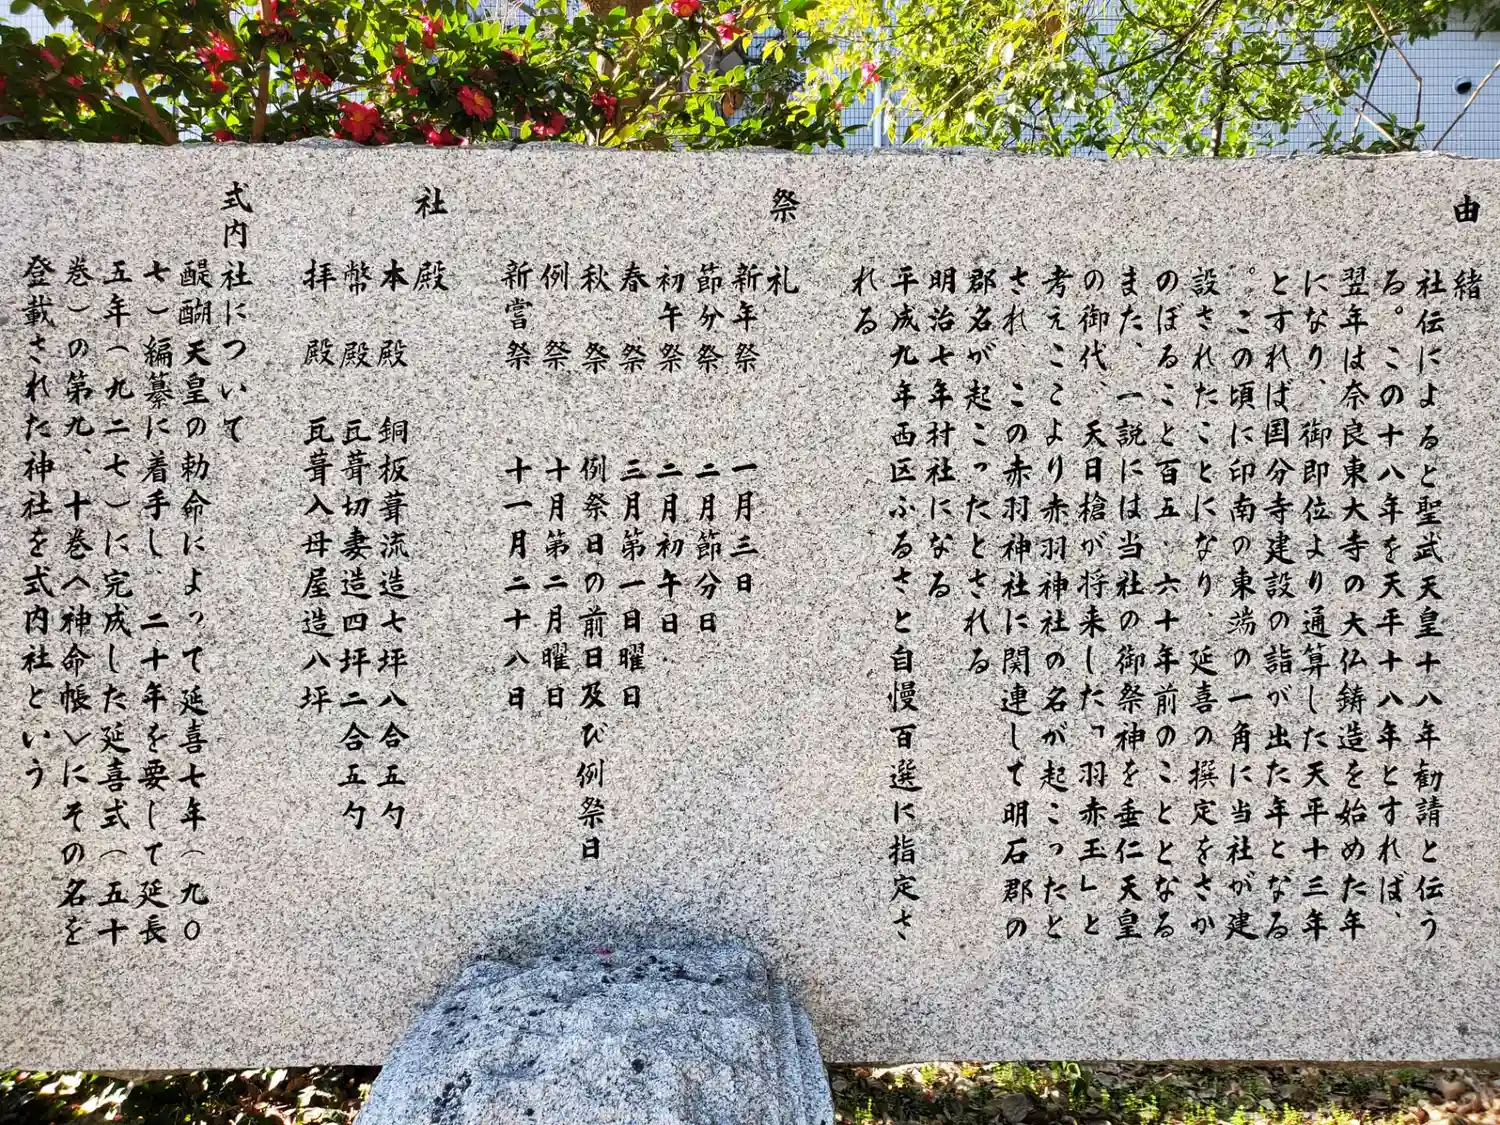 由緒
社伝によると聖武天皇十八年勧請と伝う
る。この十八年を天平十八年とすれば、
翌年は奈良東大寺の大仏鋳造を始めた年
になり、御即位より通算した天平十三年
とすれば国分寺建設の詣が出た年となる
。この頃に印南の東端の一角に当社が建
設されたことになり、延喜の撰定をさか
のぼること百五、六十年前のこととなる
また、一説には当社の御祭神を垂仁天皇
の御代、天日槍が将来した「羽赤玉」と
考えここより赤羽神社の名が起こったと
され、この赤羽神社に関連して明石郡の
郡名が起こったとされる
明治七年村社になる
平成九年西区ふるさと自慢百選に指定さ
れる
祭札
新年祭 一月三日
節分祭 二月節分日
初午祭 二月初午日
春祭 三月第一日曜日
秋祭 例祭日の前日及び例祭日
例祭 十月第二月曜日
新嘗祭 十一月二十八日
社殿
本殿 銅板葺流造七坪八合五勺
幣殿 瓦葺切妻造四坪二合五勺
拝殿 瓦葺入母屋造八坪
式内社について
醍醐天皇の勅命によって延喜七年（九〇
七）編纂に着手し、二十年を要して延長
五年（九二七）に完成した延喜式（五十
巻）の第九、十巻へ神命帳＞にその名を
登載された神社を式内社という